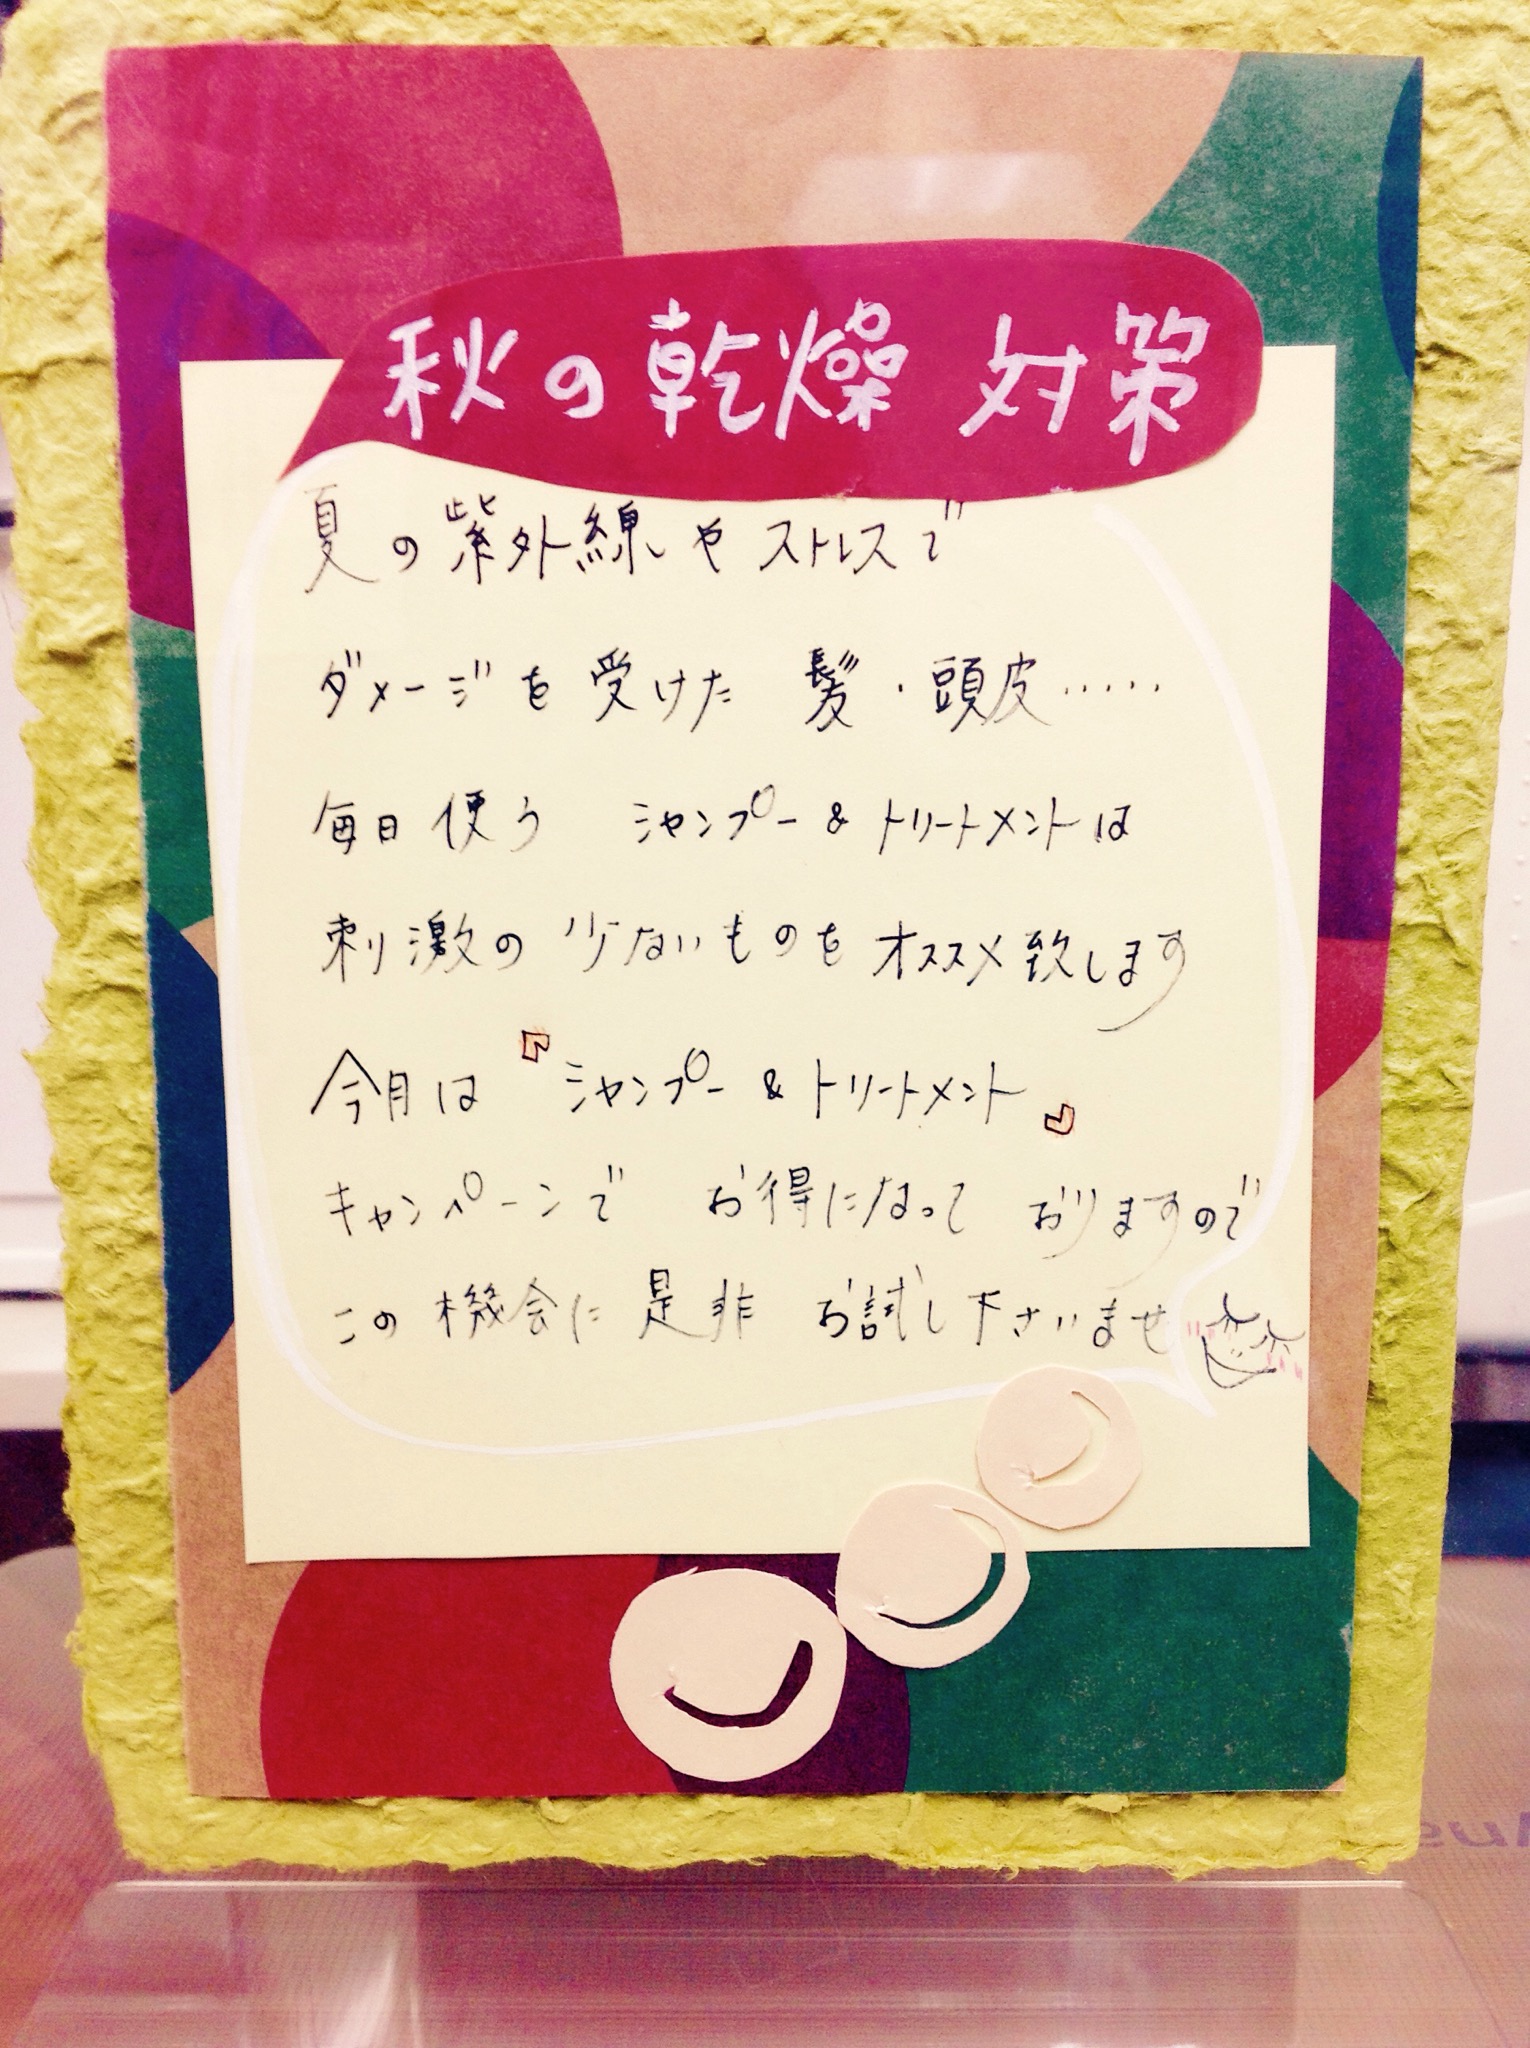 秋の乾燥 対策
夏の紫外線や ストレスで
ダメージを受けた 髪・頭皮・・・・・
毎日使う シャンプー&トリートメントは
刺激の少ないものをオススメ致します
今月は『シャンプー&トリートメント』
キャンペーンで お得になって おりますので
この機会に是非 お試し下さいませ